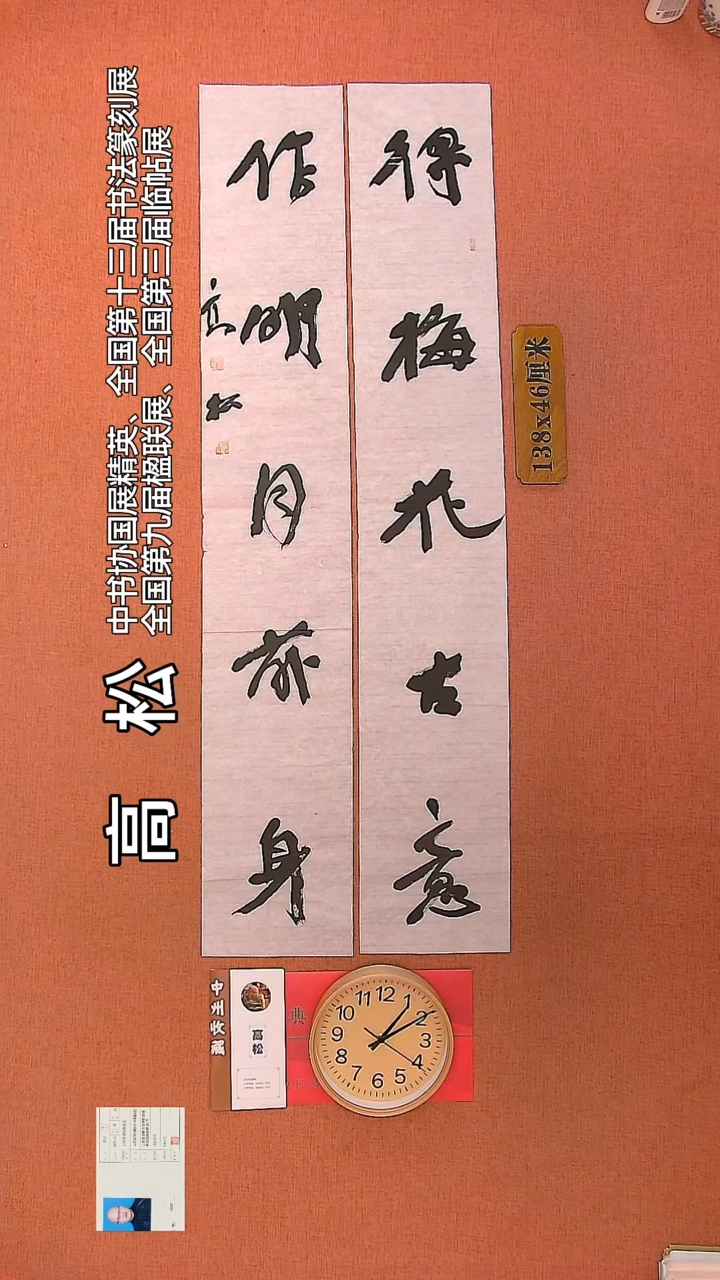 得梅花古意
作明月前身
高松
138x46厘米
高 松
中书协国展精英、全国第十三届书法篆刻展
全国第九届楹联展、全国第三届临帖展
高松
典
12
1
2
3
4
5
6
7
8
9
10
11